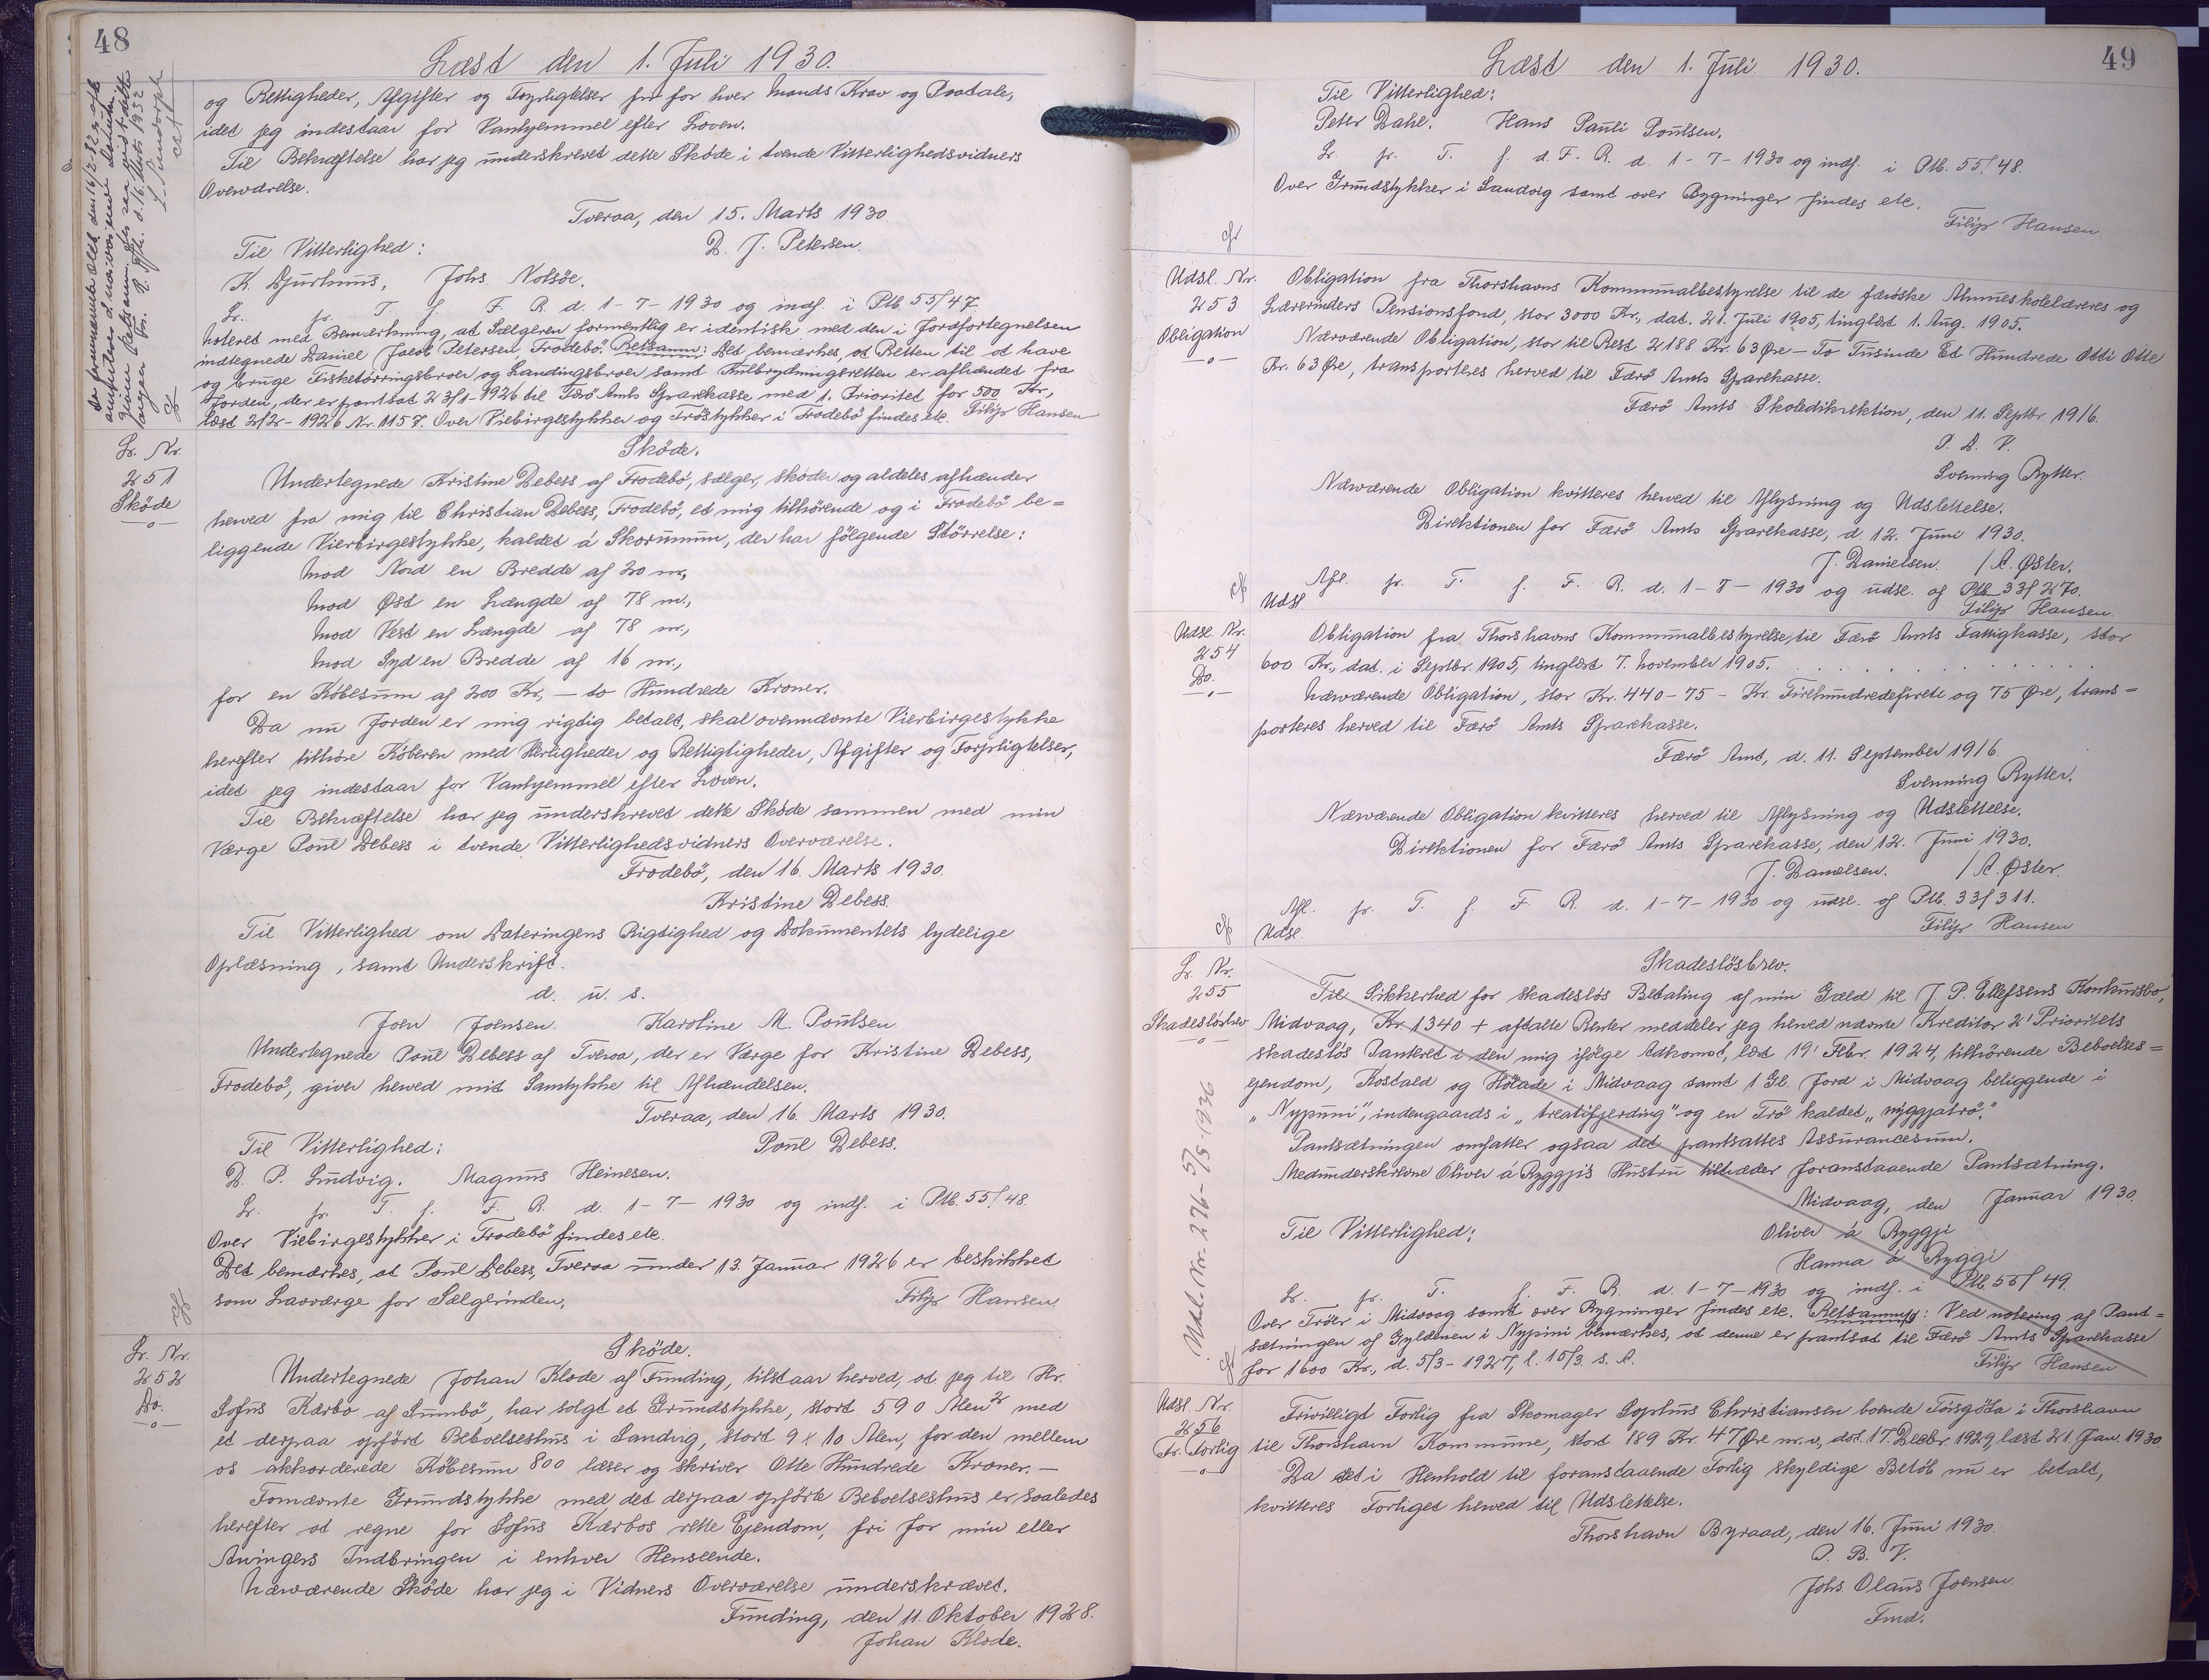 48
Læst den 1. Juli 1930.
og Rettigheder, Afgifter og Forpligtelser fri for hver Mands Krav og Paatale,
idet jeg indestaar for Vanhjemmel efter Loven.
Til Bekræftelse har jeg underskrevet dette Sköde i tvende Vitterlighedsvidners
Overværelse.
Tveraa, den 15. Marts 1930
Til Vitterlighed: D. J. Petersen.
K. Djurhuus, Johs. Nolsöe.
Lr. fr. T. f. F. R. d. 1-7-1930 og indf. i Ptb. 55/47
Noteret med Bemærkning, at Sælgeren formentlig er identisk med den i Jordfortegnelsen
indtegnede Daniel Jacob Petersen, Frodebö. Retsanm: Det bemærkes, at Retten til at have
og bruge Fisketörringsbroer og Landingsbroer samt Kulbrydningsretten er afhændet fra
Jorden, der er pantsat 23/1-1926 til Færö Amts Sparekasse med 1. Prioritet for 500 Kr.,
læst 2/2-1926 Nr. 1157. Over Viebirgestykker og Tröstykker i Frodebö findes etc. Filip Hansen
Lr. Nr.
251
Sköde
Sköde.
Undertegnede Kristine Debess af Frodebö, sælger, skøder og aldeles afhænder
herved fra mig til Christian Debess, Frodebö, et mig tilhörende og i Frodebö be=
liggende Vierbirgestykke, kaldet á Skorunum, der har fölgende Störrelse:
mod Nord en Bredde af 20 m,
mod Øst en Længde af 78 m.,
mod Vest en Længde af 78 m.,
mod Syd en Bredde af 16 m.,
for en Köbesum af 200 Kr, - to Hundrede Kroner.
Da nu Jorden er mig rigtig betalt, skal ovennævnte Vierbirgestykke
herefter tilhøre Köberen med Herligheder og Rettigtigheder, Afgifter og Forpligtelser,
idet jeg indestaar for Vanhjemmel efter Loven.
Til Bekræftelse har jeg underskrevet dette Sköde sammen med min
Værge Poul Debess i tvende Vitterlighedsvidners Overværelse.
Frodebö, den 16. Marts 1930.
Kristine Debess.
Til Vitterlighed om Dateringens Rigtighed og Dokumentets lydelige
Oplæsning, samt Underskrift.
d. u. s.
Joen Joensen. Karoline M. Poulsen.
Undertegnede Poul Debess af Tveraa, der er Værge for Kristine Debess,
Frodebö, giver herved mit Samtykke til Afhændelsen.
Tveraa, den 16. Marts 1930.
Til Vitterlighed: Poul Debess.
D. P. Ludvig. Magnus Heinesen.
Lr. fr. T. f. F. R. d. 1-7-1930 og indf. i Ptb. 55/48.
Over Viebirgestykker i Frodebö findes etc.
Det bemærkes, at Poul Debess, Tveraa under 13. Januar 1926 er beskikket
som Lavværge for Sælgerinden, Filip Hansen.
Lr. Nr.
252
Do.
Sköde.
Undertegnede Johan Klode af Funding, tilstaar herved, at jeg til Hr.
Sofus Kærbo af Sumbö, har solgt et Grundstykke, stort 590 Alen² med
et derpaa opfört Beboelseshus i Sandvig, stort 9 x 10 Alen, for den mellem
os akkorderede Köbesum 800 læser og skriver Otte Hundrede Kroner. -
Fornævnte Grundstykke med det derpaa opförte Beboelseshus er saaledes
herefter at regne for Sofus Kærbos rette Ejendom, fri for min eller
Arvingers Indbringen i enhver Henseende.
Nærværende Sköde har jeg i Vidners Overværelse underskrævet.
Funding, den 11. Oktober 1928.
Johan Klode.
49
Læst den 1. Juli 1930.
Til Vitterlighed:
Peter Dahl. Hans Pauli Poulsen.
Lr. fr. T. f. d. F. R. d. 1-7-1930 og indf. i Ptb. 55/48.
Over Grundstykker i Sandvig samt over Bygninger findes etc.
Filip Hansen.
Udsl. Nr.
253
Obligation
Obligation fra Thorshavns Kommunalbestyrelse til de færøske Almueskolelæreres og
Lærerinders Pensionsfond, stor 3000 Kr., dat. 21. Juli 1905, tinglæst 1. Aug. 1905.
Nærværende Obligation, stor til Rest 2188 Kr. 63 Øre - To Tusinde Et Hundrede Otti Otte
Kr. 63 Øre, transporteres herved til Færö Amts Sparekasse.
Færö Amts Skoledikrektion, den 11. Septbr. 1916.
P. A. V.
Svenning Rytter.
Nærværende Obligation kvitteres herved til Aflysning og Udslettelse.
Direktionen for Færö Amts Sparekasse, d. 12. Juni 1930.
J. Danielsen. / A. Øster.
Afl. fr. T. f. F. R. d. 1-7-1930 og udsl. af Ptb. 33/270.
Udsl. Filip Hansen.
Udsl. Nr.
254
Do.
Obligation fra Thorshavns Kommunalbestyrelse til Færö Amts Fattigkasse, stor
600 Kr., dat. i Septbr. 1905, tinglæst 7. November 1905.
Nærværende Obligation, stor Kr. 440-75 - Kr. Firehundredefireti og 75 Øre, trans=
porteres herved til Færö Amts Sparekasse.
Færö Amt, d. 11. September 1916.
Svenning Rytter.
Nærværende Obligation kvitteres herved til Aflysning og Udslettelse.
Direktionen for Færö Amts Sparekasse, den 12. Juni 1930.
J. Danielsen. / A. Øster.
Afl. fr. T. f. F. R. d. 1-7-1930 og udsl. af Ptb. 33/311.
Udsl. Filip Hansen
Lr. Nr.
255
Skadeslösbrev
Skadeslösbrev.
Til Sikkerhed for skadeslös Betaling af min Gæld til J. P. Ellefsens Konkursbo,
Midvaag, Kr. 1340 + aftalte Renter meddeler jeg herved nævnte Kreditor 2' Prioritets
skadeslös Panteret i den mig ifölge Adkomst, læst 19' Febr. 1924, tilhörende Beboelses=
ejendom, Kostald og Hölade i Midvaag samt 1 Gl. Jord i Midvaag beliggende i
"Nypuni", indengaards i "treatifjerding" og en Trö kaldet "nýggjatrö."
Pantsætningen omfatter ogsaa det pantsattes Assurancesum.
Medunderskrevne Oliver á Ryggji's Hustru tiltræder foranstaaende Pantsætning.
Midvaag, den Januar 1930.
Til Vitterlighed: Oliver á Ryggji
Hanna á Ryggi
Lr. fr. T. f. F. R. d. 1-7-1930 og indf. i Ptb. 55/49.
Over Tröer i Midvaag samt over Bygninger findes etc. Retsanmg: Ved notering af Pant=
sætningen af Gyldenen i Nypini bemærkes, at denne er pantsat til Færö Amts Sparekasse
for 1600 Kr., d. 5/3-1927, l. 15/3. s. A. Filip Hansen
Udsl. Nr. 276-5/5-1936
Udsl. Nr.
256
Fr. Forlig
Frivilligt Forlig fra Skomager Sophus Christiansen boende Tórsgöta i Thorshavn
til Thorshavn Kommune, stort 189 Kr. 47 Øre m.v., dat. 17. Decbr. 1929, læst 21. Jan. 1930.
Da det i Henhold til foranstaaende Forlig skyldige Belöb nu er betalt,
kvitteres Forliget herved til Udslettelse.
Thorshavn Byraad, den 16. Juni 1930.
P. B. V.
Johs. Olaus Joensen.
Fmd.